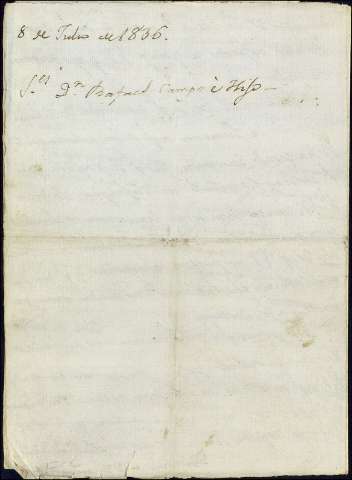 8 de Julio de 1836.
S.es D.n Rafael Campo è Hijo